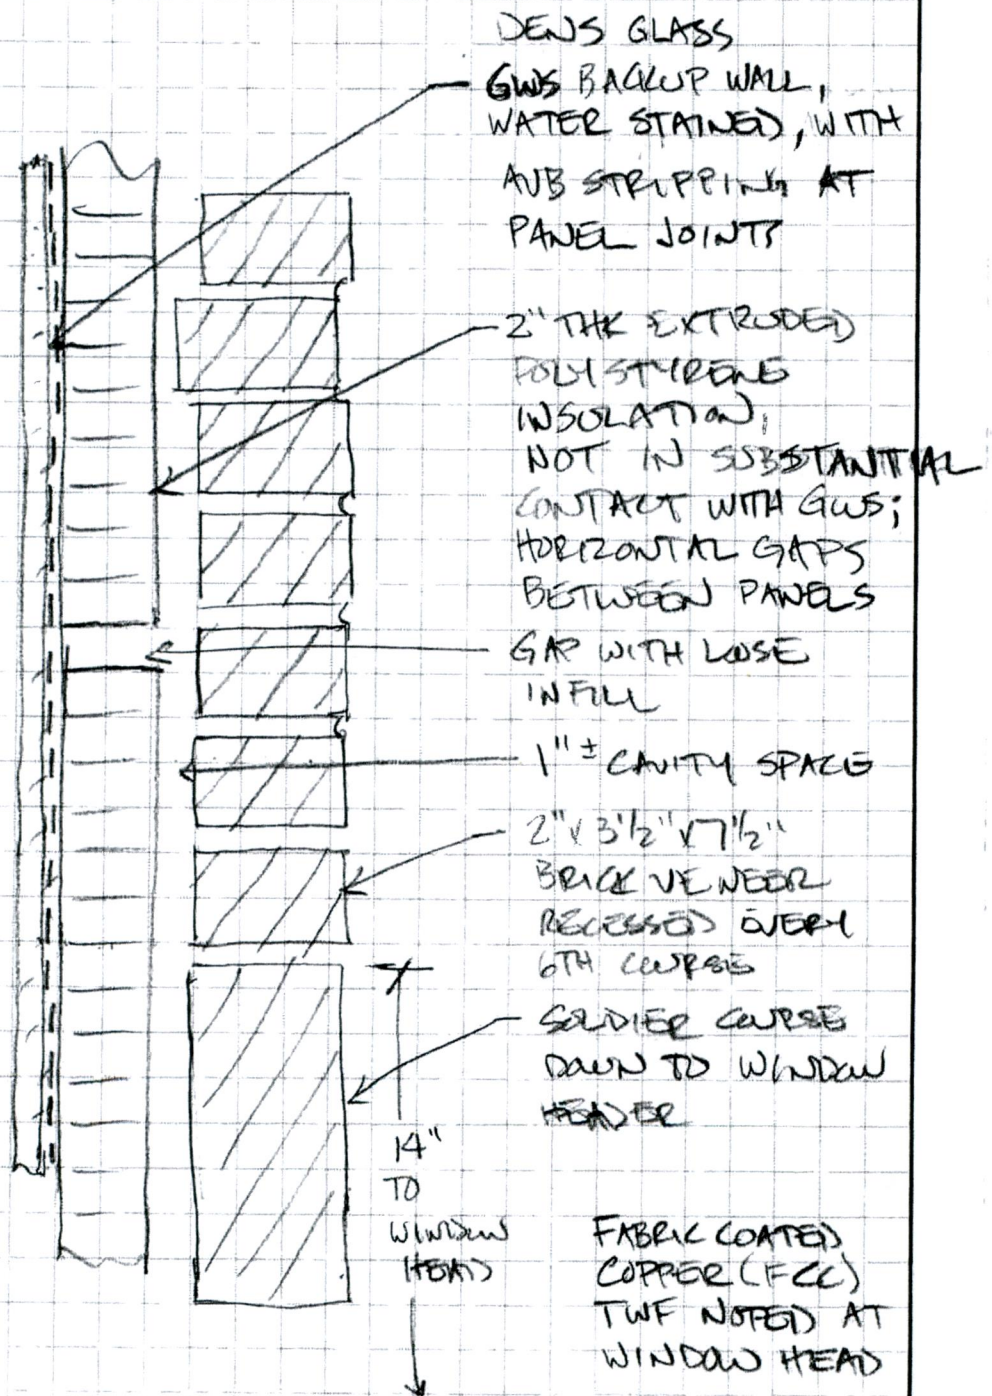 DENS GLASS
GWS BACKUP WALL,
WATER STAINED, WITH
AVB STRIPPING AT
PANEL JOINTS
2" THK EXTRUDED
POLYSTYRENE
INSULATION,
NOT IN SUBSTANTIAL
CONTACT WITH GWS;
HORIZONTAL GAPS
BETWEEN PANELS
GAP WITH LOOSE
INFILL
1" ± CAVITY SPACE
2" x 3 1/2" x 7 1/2"
BRICK VENEER
RECESSED EVERY
6TH COURSE
SOLDIER COURSE
DOWN TO WINDOW
HEADER
14"
TO
WINDOW
HEAD
FABRIC COATED
COPPER (FCC)
TWF NOTED AT
WINDOW HEAD